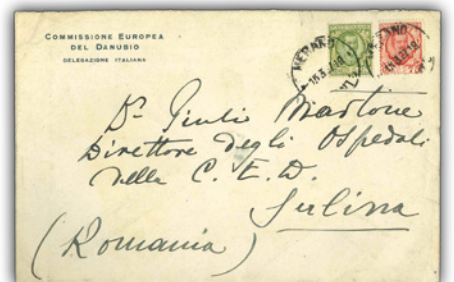 COMMISSIONE EUROPEA
DEL DANUBIO
DELEGAZIONE ITALIANA
MERANO
Dr Giulio
Direttore degli Ospedali
della C. E. D.
Sulina
(Romania)